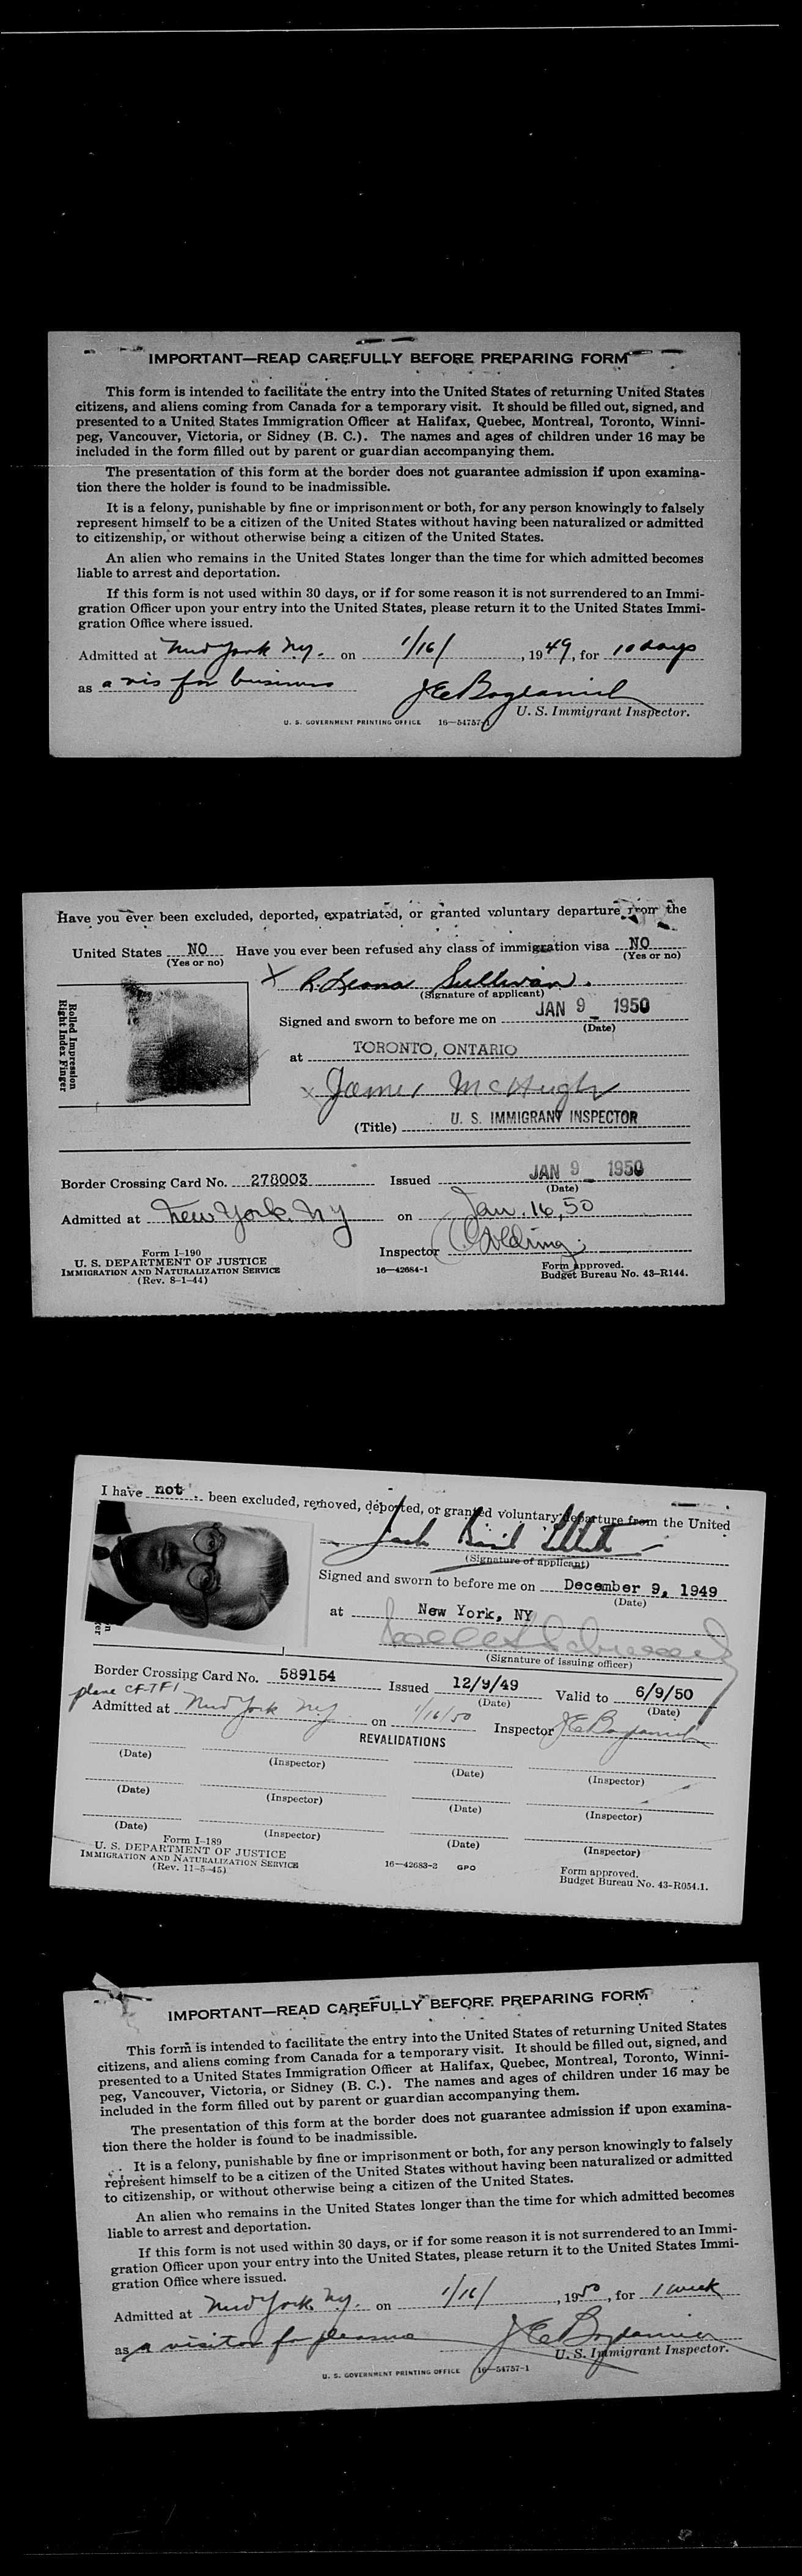 IMPORTANT—READ CAREFULLY BEFORE PREPARING FORM
This form is intended to facilitate the entry into the United States of returning United States
citizens, and aliens coming from Canada for a temporary visit. It should be filled out, signed, and
presented to a United States Immigration Officer at Halifax, Quebec, Montreal, Toronto, Winni-
peg, Vancouver, Victoria, or Sidney (B. C.). The names and ages of children under 16 may be
included in the form filled out by parent or guardian accompanying them.
The presentation of this form at the border does not guarantee admission if upon examina-
tion there the holder is found to be inadmissible.
It is a felony, punishable by fine or imprisonment or both, for any person knowingly to falsely
represent himself to be a citizen of the United States without having been naturalized or admitted
to citizenship, or without otherwise being a citizen of the United States.
An alien who remains in the United States longer than the time for which admitted becomes
liable to arrest and deportation.
If this form is not used within 30 days, or if for some reason it is not surrendered to an Immi-
gration Officer upon your entry into the United States, please return it to the United States Immi-
gration Office where issued.
Admitted at New York NY. on 1/16/, 1949, for 10 days
as a vis for business
U. S. Immigrant Inspector.
U. S. GOVERNMENT PRINTING OFFICE 16—54757-1
Have you ever been excluded, deported, expatriated, or granted voluntary departure from the
United States NO Have you ever been refused any class of immigration visa NO
(Yes or no) (Yes or no)
X R. Leona Sullivan.
(Signature of applicant)
Rolled Impression
Right Index Finger
Signed and sworn to before me on JAN 9 1950
(Date)
at TORONTO, ONTARIO
X James McHugh
(Title) U. S. IMMIGRANT INSPECTOR
Border Crossing Card No. 278003 Issued JAN 9 1950
(Date)
Admitted at New York. NY on Jan. 16, 50
Inspector
Form I-190
U. S. DEPARTMENT OF JUSTICE
IMMIGRATION AND NATURALIZATION SERVICE
(Rev. 8-1-44)
16—42684-1
Form approved.
Budget Bureau No. 43-R144.
I have not been excluded, removed, deported, or granted voluntary departure from the United
Jack
(Signature of applicant)
Signed and sworn to before me on December 9, 1949
(Date)
at New York, NY
(Signature of issuing officer)
Border Crossing Card No. 589154 Issued 12/9/49 Valid to 6/9/50
(Date) (Date)
plane CF-TFI
Admitted at New York NY on 1/16/50 Inspector
REVALIDATIONS
(Date) (Inspector) (Date) (Inspector)
(Date) (Inspector) (Date) (Inspector)
(Date) (Inspector) (Date) (Inspector)
Form I-189
U. S. DEPARTMENT OF JUSTICE
IMMIGRATION AND NATURALIZATION SERVICE
(Rev. 11-5-45)
16—42683-3 GPO
Form approved.
Budget Bureau No. 43-R054.1.
IMPORTANT—READ CAREFULLY BEFORE PREPARING FORM
This form is intended to facilitate the entry into the United States of returning United States
citizens, and aliens coming from Canada for a temporary visit. It should be filled out, signed, and
presented to a United States Immigration Officer at Halifax, Quebec, Montreal, Toronto, Winni-
peg, Vancouver, Victoria, or Sidney (B. C.). The names and ages of children under 16 may be
included in the form filled out by parent or guardian accompanying them.
The presentation of this form at the border does not guarantee admission if upon examina-
tion there the holder is found to be inadmissible.
It is a felony, punishable by fine or imprisonment or both, for any person knowingly to falsely
represent himself to be a citizen of the United States without having been naturalized or admitted
to citizenship, or without otherwise being a citizen of the United States.
An alien who remains in the United States longer than the time for which admitted becomes
liable to arrest and deportation.
If this form is not used within 30 days, or if for some reason it is not surrendered to an Immi-
gration Officer upon your entry into the United States, please return it to the United States Immi-
gration Office where issued.
Admitted at New York, NY. on 1/16/, 1950, for 1 week
as a visitor for pleasure
U. S. Immigrant Inspector.
U. S. GOVERNMENT PRINTING OFFICE 16—54757-1